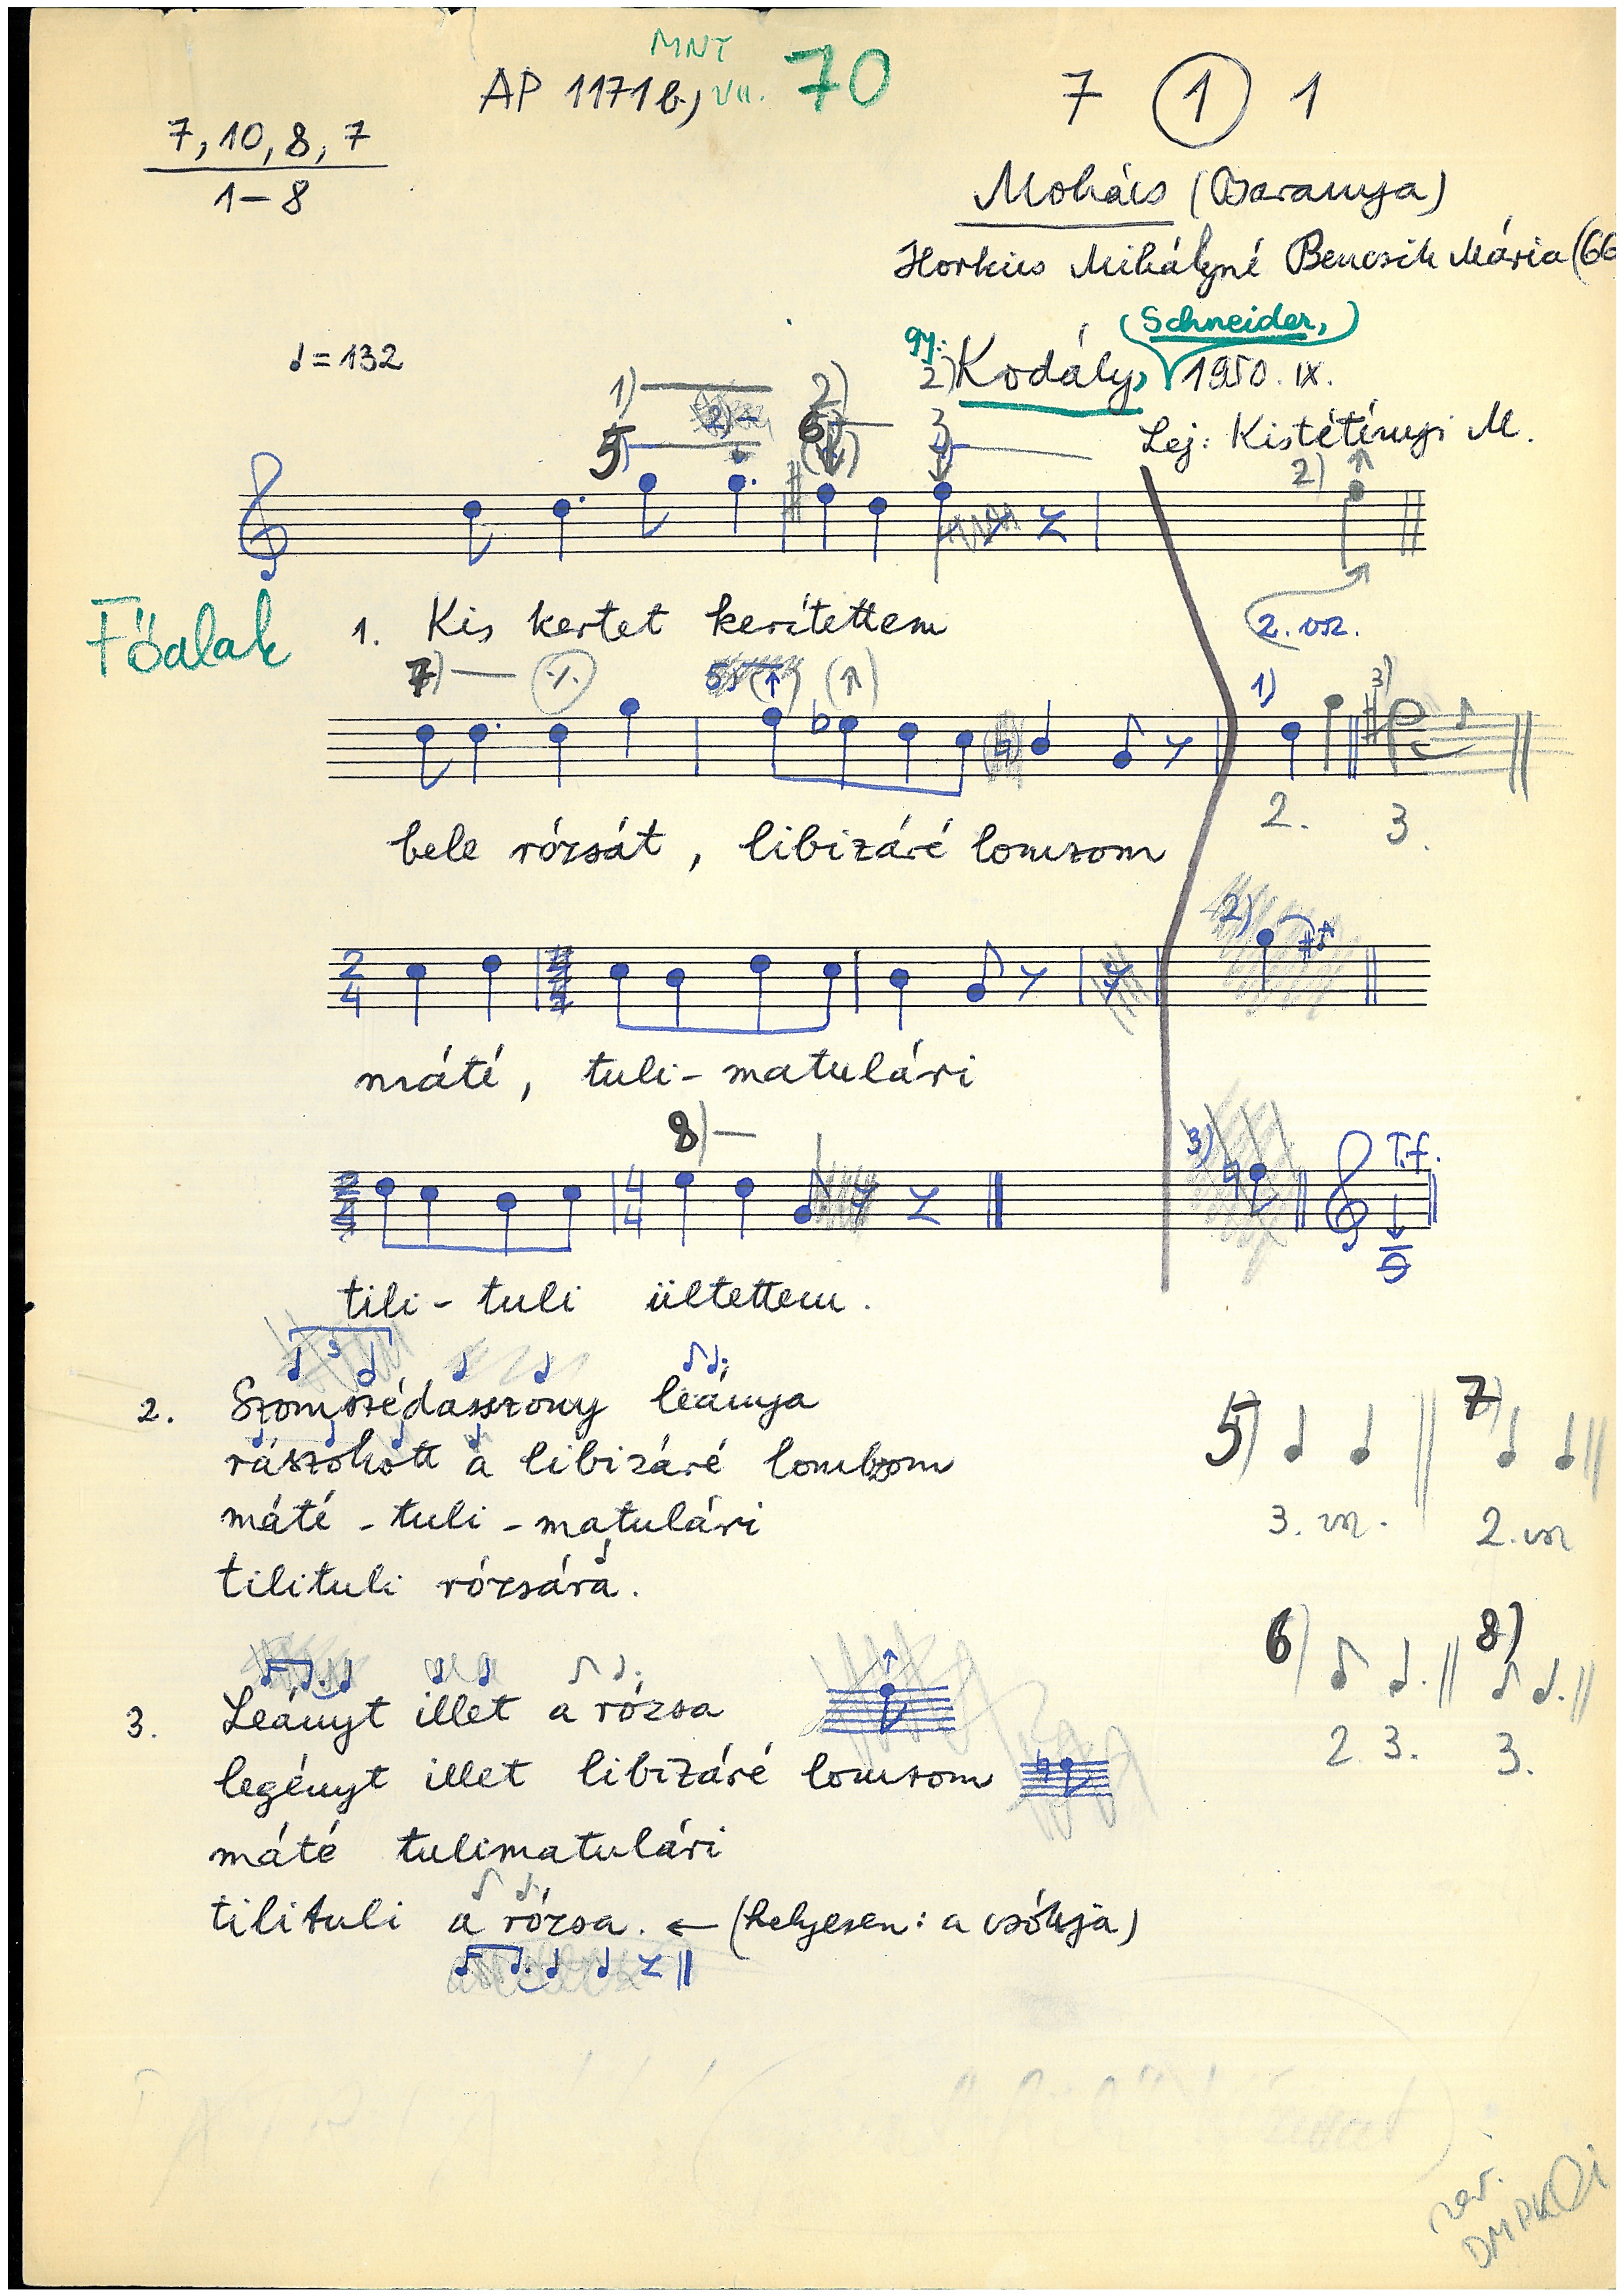 MNT
AP 1171 b, VII. 70 7 1 1
7, 10, 8, 7
1 – 8
Mohács (Baranya)
Horkics Mihályné Bencsik Mária (66
(Schneider,)
gy:
2) Kodály, 1950. IX.
♩ = 132
Lej: Kistétényi M.
1) 2)
5) 6) 3
2)
Főalak
1. Kis kertet kerítettem
2. vsz.
7) 1) 3)
bele rózsát, libizáré lomzom
2. 3.
2)
2
4
máté, tuli-matulári
8)
3)
T.f.
4
4
tili-tuli ültettem.
2. Szomszédasszony leánya
rászokott a libizáré lombzom
máté - tuli - matulári
tilituli rózsára.
5) 7)
3. vsz. 2. vsz
6) 8)
2. 3. 3.
3. Leányt illet a rózsa
legényt illet libizáré lomzom
máté tulimatulári
tilituli a rózsa. ← (helyesen: a csókja)